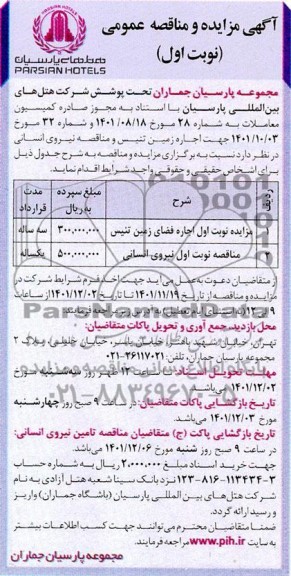 آگهی مزایده و مناقصه عمومی
(نوبت اول)
هتلهای پارسیان
PARSIAN HOTELS
مجموعه پارسیان جماران تحت پوشش شرکت هتل‌های
بین‌المللی پارسیان با استناد به مجوز صادره کمیسیون
معاملات به شماره ۲۸ مورخ ۱۴۰۱/۰۸/۱۸ و شماره ۳۲ مورخ
۱۴۰۱/۱۰/۰۳ جهت اجاره زمین تنیس و مناقصه نیروی انسانی
در نظر دارد نسبت به برگزاری مزایده و مناقصه به شرح جدول ذیل
برای اشخاص حقیقی و حقوقی واجد شرایط اقدام نماید.
ردیف شرح مبلغ سپرده به ریال مدت قرارداد
۱ مزایده نوبت اول اجاره فضای زمین تنیس ۳۰۰,۰۰۰,۰۰۰ سه ساله
۲ مناقصه نوبت اول نیروی انسانی ۵۰۰,۰۰۰,۰۰۰ یکساله
از متقاضیان دعوت به عمل می‌آید جهت اخذ فرم شرایط شرکت در
مزایده و مناقصه از تاریخ ۱۴۰۱/۱۱/۱۹ تا تاریخ ۱۴۰۱/۱۲/۰۲ از ساعات
۹ الی ۱۲ (به استثنای ایام تعطیل) به آدرس زیر مراجعه فرمایند.
محل بازدید، جمع آوری و تحویل پاکات متقاضیان:
تهران، خیابان شهید باهنر، خیابان یاسر، خیابان پلاک ۲
مجموعه پارسیان جماران، تلفن: ۳۶۱۱۷۰۲۱-۰۲۱
مهلت تحویل اسناد: تا ساعت ۱۲ ظهر روز سه شنبه مورخ
۱۴۰۱/۱۲/۰۲ می‌باشد.
تاریخ بازگشایی پاکات متقاضیان: در ساعت ۹ صبح روز چهارشنبه
مورخ ۱۴۰۱/۱۲/۰۳ می‌باشد.
تاریخ بازگشایی پاکت (ج) متقاضیان مناقصه تامین نیروی انسانی:
در ساعت ۹ صبح روز شنبه مورخ ۱۴۰۱/۱۲/۰۶ می‌باشد.
جهت خرید اسناد مبلغ ۲,۰۰۰,۰۰۰ ریال به شماره حساب
۱۲۳-۸۱۶-۱۱۳۴۳۴-۳ نزد بانک سینا شعبه هتل آزادی به نام
شرکت هتل‌های بین المللی پارسیان (باشگاه جماران) واریز و
رسید ارائه گردد.
ضمنا متقاضیان محترم می‌توانند جهت کسب اطلاعات بیشتر
به سایت www.pih.ir مراجعه فرمایند.
مجموعه پارسیان جماران
۰۲۱-۸۸۳۴۹۶۷۰-۵